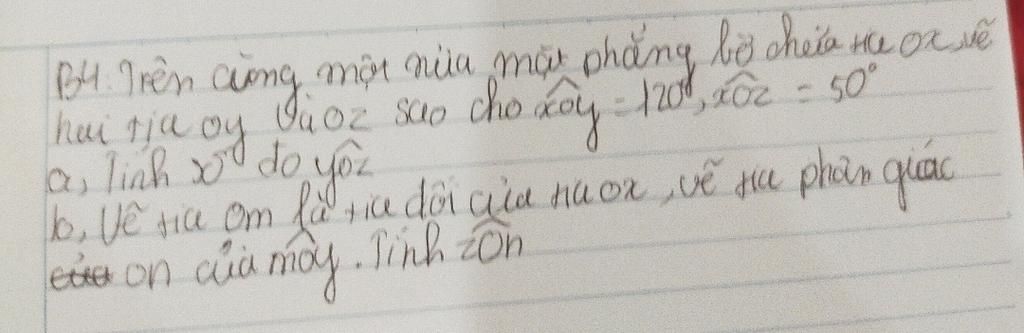 B4. Trên cùng một nửa mặt phẳng bờ chứa tia ox, vẽ
hai tia oy và oz sao cho xôy = 120°, xôz = 50°
a, Tính số đo yôz
b, Vẽ tia om là tia đối của tia ox, vẽ tia phân giác
của on của môy. Tính zôn